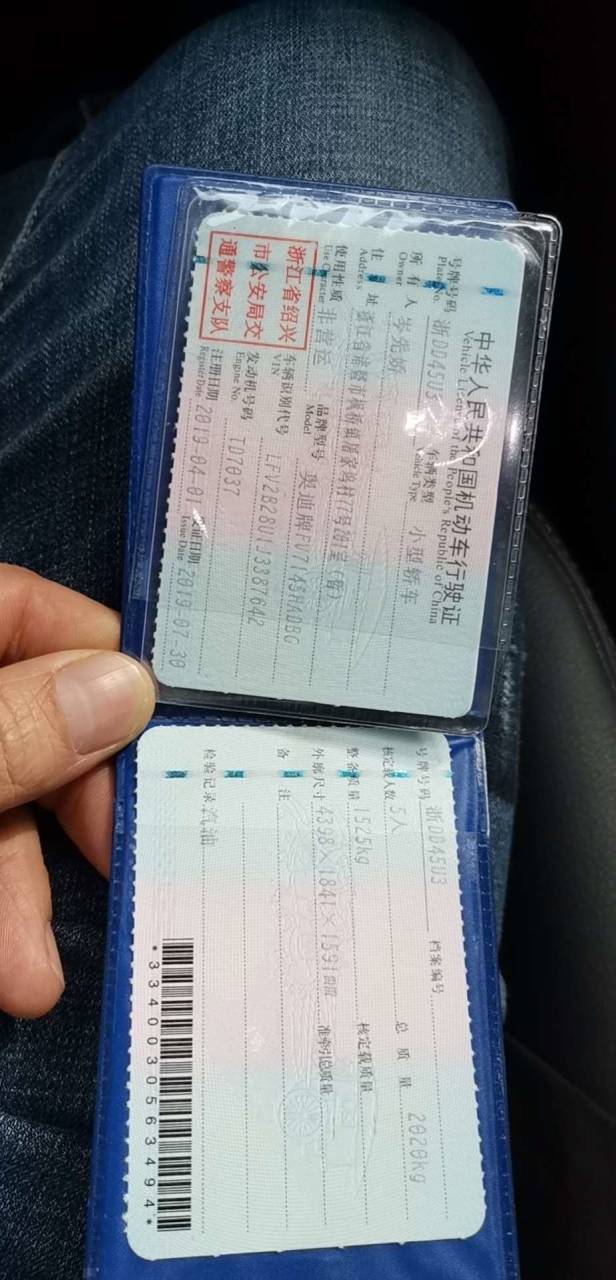 中华人民共和国机动车行驶证
Vehicle License of the People's Republic of China
号牌号码 浙DD45U3 车辆类型 小型轿车
Plate No. Vehicle Type
所有人
Owner
住址 浙江省诸暨市枫桥镇
Address
使用性质 非营运 品牌型号 奥迪牌FV7145HADBG
Use Character Model
浙江省绍兴
市公安局交
通警察支队
车辆识别代号 LFV2B28U1J3387642
VIN
发动机号码 TD7037
Engine No.
注册日期 2019-04-01 发证日期 2019-07-30
Register Date Issue Date
号牌号码 浙DD45U3 档案编号
核定载人数 5人 总质量 2020kg
整备质量 1525kg 核定载质量
外廓尺寸 4398×1841×1591mm 准牵引总质量
备注
检验记录 汽油
*3340030563494*